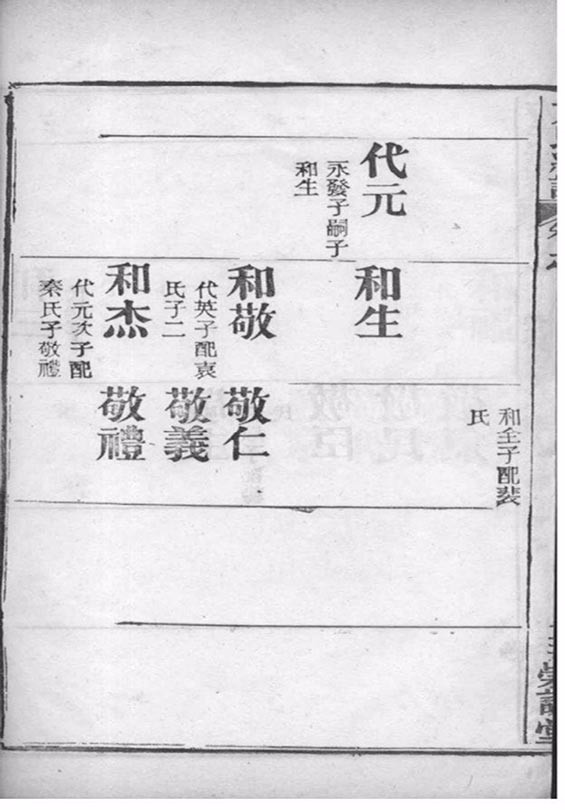 和全子配裴
氏
代元
永發子嗣子
和生
和生
和敬
代英子配袁
氏子二
和杰
代元次子配
秦氏子敬禮
敬仁
敬義
敬禮